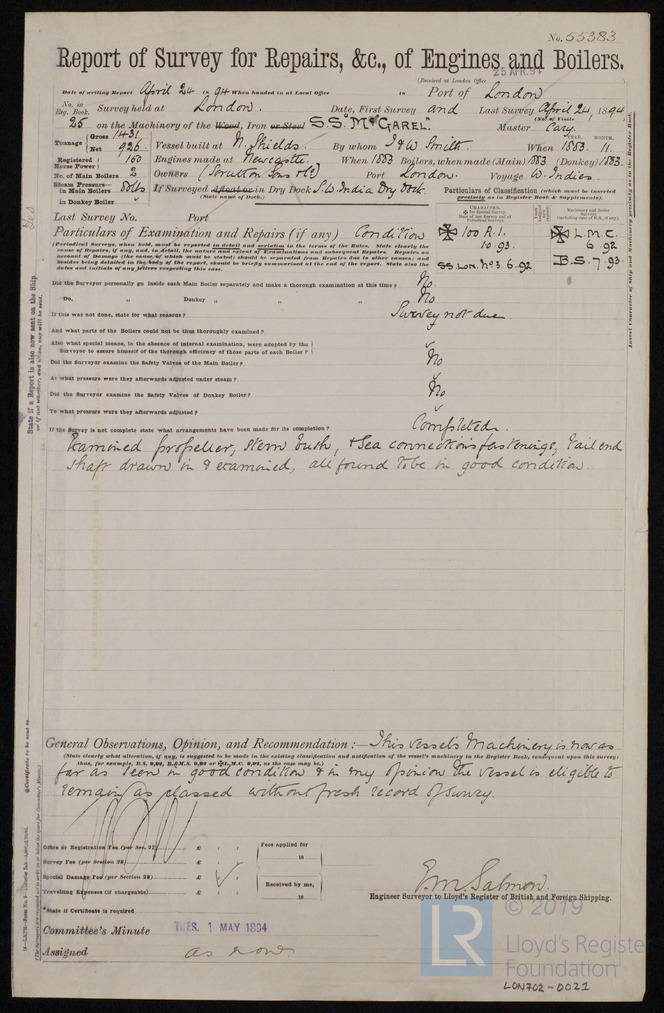 No. 55383
Report of Survey for Repairs, &c., of Engines and Boilers.
25 APR. 94
(Received at London Office
Date of writing Report April 24 1894 When handed in at Local Office in Port of London
No. in Reg. Book. Survey held at London. Date, First Survey and Last Survey April 24, 1894
(No. of Visits
25 on the Machinery of the Wood, Iron or Steel S.S. "McGAREL" Master Cary.
Tonnage Gross 1431 Net 926 Vessel built at N. Shields. By whom T & W. Smith. When 1883 11.
YEAR. MONTH.
Registered Horse Power 160 Engines made at Newcastle. When 1883 Boilers, when made (Main) 1883 (Donkey) 1883.
No. of Main Boilers 2 Owners (Scrutton Sons & Co) Port London. Voyage W. Indies.
Steam Pressure in Main Boilers 80 lbs If Surveyed Afloat or in Dry Dock S.W. India Dry Dock.
(State name of Dock.)
in Donkey Boiler
Particulars of Classification (which must be inserted precisely as in Register Book & Supplements).
Last Survey No. Port
CHARACTER.
Machinery and Boiler Surveys
Particulars of Examination and Repairs (if any) Condition
✠ 100 A.1.
10 93.
SS. Lon. No3. 6.92
✠ L.M.C.
6.92
B.S. 7.93.
(Periodical Surveys, when held, must be reported in detail and seriatim in the terms of the Rules. State clearly the cause of Repairs, if any, and, in detail, the nature and extent of Examinations and subsequent Repairs. Repairs on account of Damage (the cause of which must be stated) should be separated from Repairs due to other causes; and besides being detailed in the body of the report, should be briefly summarised at the end of the report. State also the dates and initials of any letters respecting this case.
Did the Surveyor personally go inside each Main Boiler separately and make a thorough examination at this time? No.
Do. " Donkey " " " No
If this was not done, state for what reasons? Survey not due.
And what parts of the Boilers could not be thus thoroughly examined?
Also what special means, in the absence of internal examination, were adopted by the Surveyor to assure himself of the thorough efficiency of those parts of each Boiler?
Did the Surveyor examine the Safety Valves of the Main Boiler? No
At what pressure were they afterwards adjusted under steam?
Did the Surveyor examine the Safety Valves of Donkey Boiler? No
To what pressure were they afterwards adjusted?
If the Survey is not complete state what arrangements have been made for its completion? Completed.
Examined propeller, stern bush, & sea connections fastenings, tail end
shaft drawn in & examined, all found to be in good condition.
General Observations, Opinion, and Recommendation:— This vessel's machinery is now as
(State clearly what alteration, if any, is suggested to be made in the existing classification and notification of the vessel's machinery in the Register Book, consequent upon this survey:
thus, for example, B.S. 9,93, B.&M.S. 9,93 or ✠L.M.C. 9,93, as the case may be.)
far as seen in good condition & in my opinion the vessel is eligible to
remain as classed without fresh record of survey.
Office or Registration Fee (per Sec. 27) £
Survey Fee (per Section 28) £
Special Damage Fee (per Section 28) £
Travelling Expenses (if chargeable) £
Fees applied for
18
Received by me,
18
*State if Certificate is required
E.M. Salmon.
Engineer Surveyor to Lloyd's Register of British and Foreign Shipping.
Committee's Minute TUES. 1 MAY 1894
Assigned as now
State if a Report is also now sent on the Ship
Insert Character of Ship and Machinery precisely as in the Register Book.
© 2019
LR
Lloyd's Register
Foundation
LON702-0021